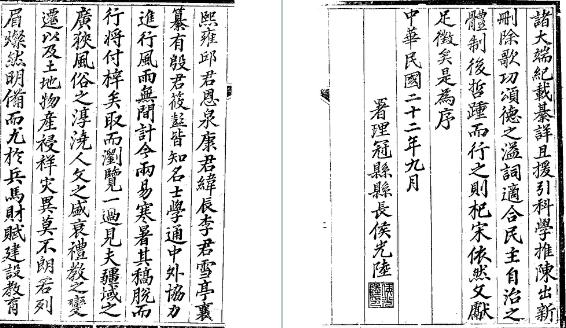 熙雍邱君恩泉康君緯辰李君雪亭襄
纂有殷君筱彭皆知名士學通中外協力
進行風雨無間計今兩易寒暑其稿脫而
行將付梓矣取而瀏覽一過見夫疆域之
廣狹風俗之淳澆人文之盛衰禮教之變
遷以及土地物產祲祥灾異莫不朗若列
眉燦然明備而尤於兵馬財賦建設教育
諸大端紀載綦詳且援引科學推陳出新
刪除歌功頌德之溢詞適合民主自治之
體制後哲踵而行之則杞宋依然文獻
足徵矣是為序
中華民國二十二年九月
署理冠縣縣長侯光陸